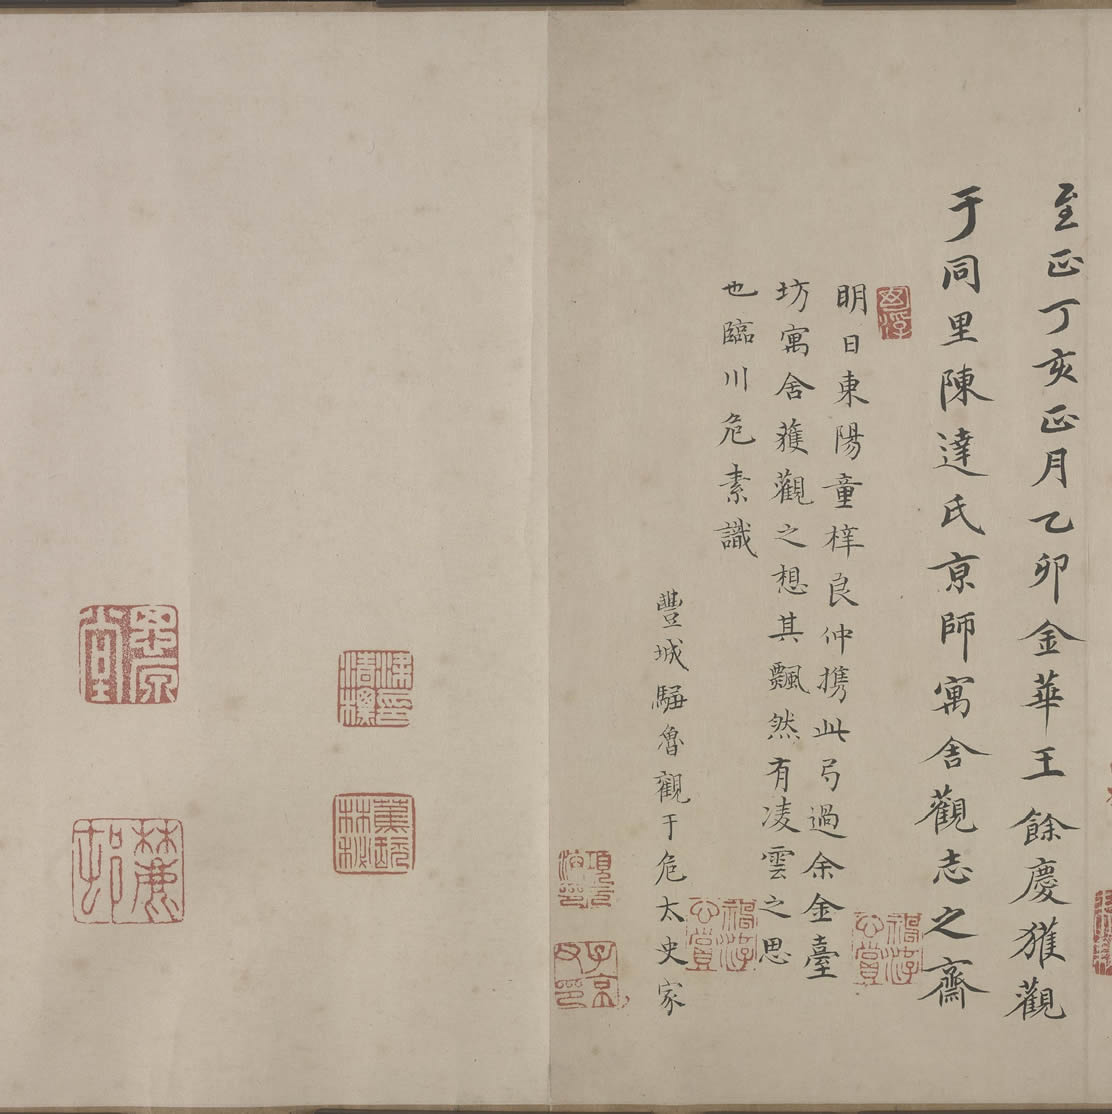 至正丁亥正月乙卯金華王餘慶獲觀
于同里陳達氏亰師寓舍觀志之齋
明日東陽童梓良仲携此弓過余金臺
坊寓舍獲觀之想其飄然有凌雲之思
也臨川危素識
豐城魯觀于危太史家
項元汴印
子京父印
蕉林秘玩
思原堂
麓邨